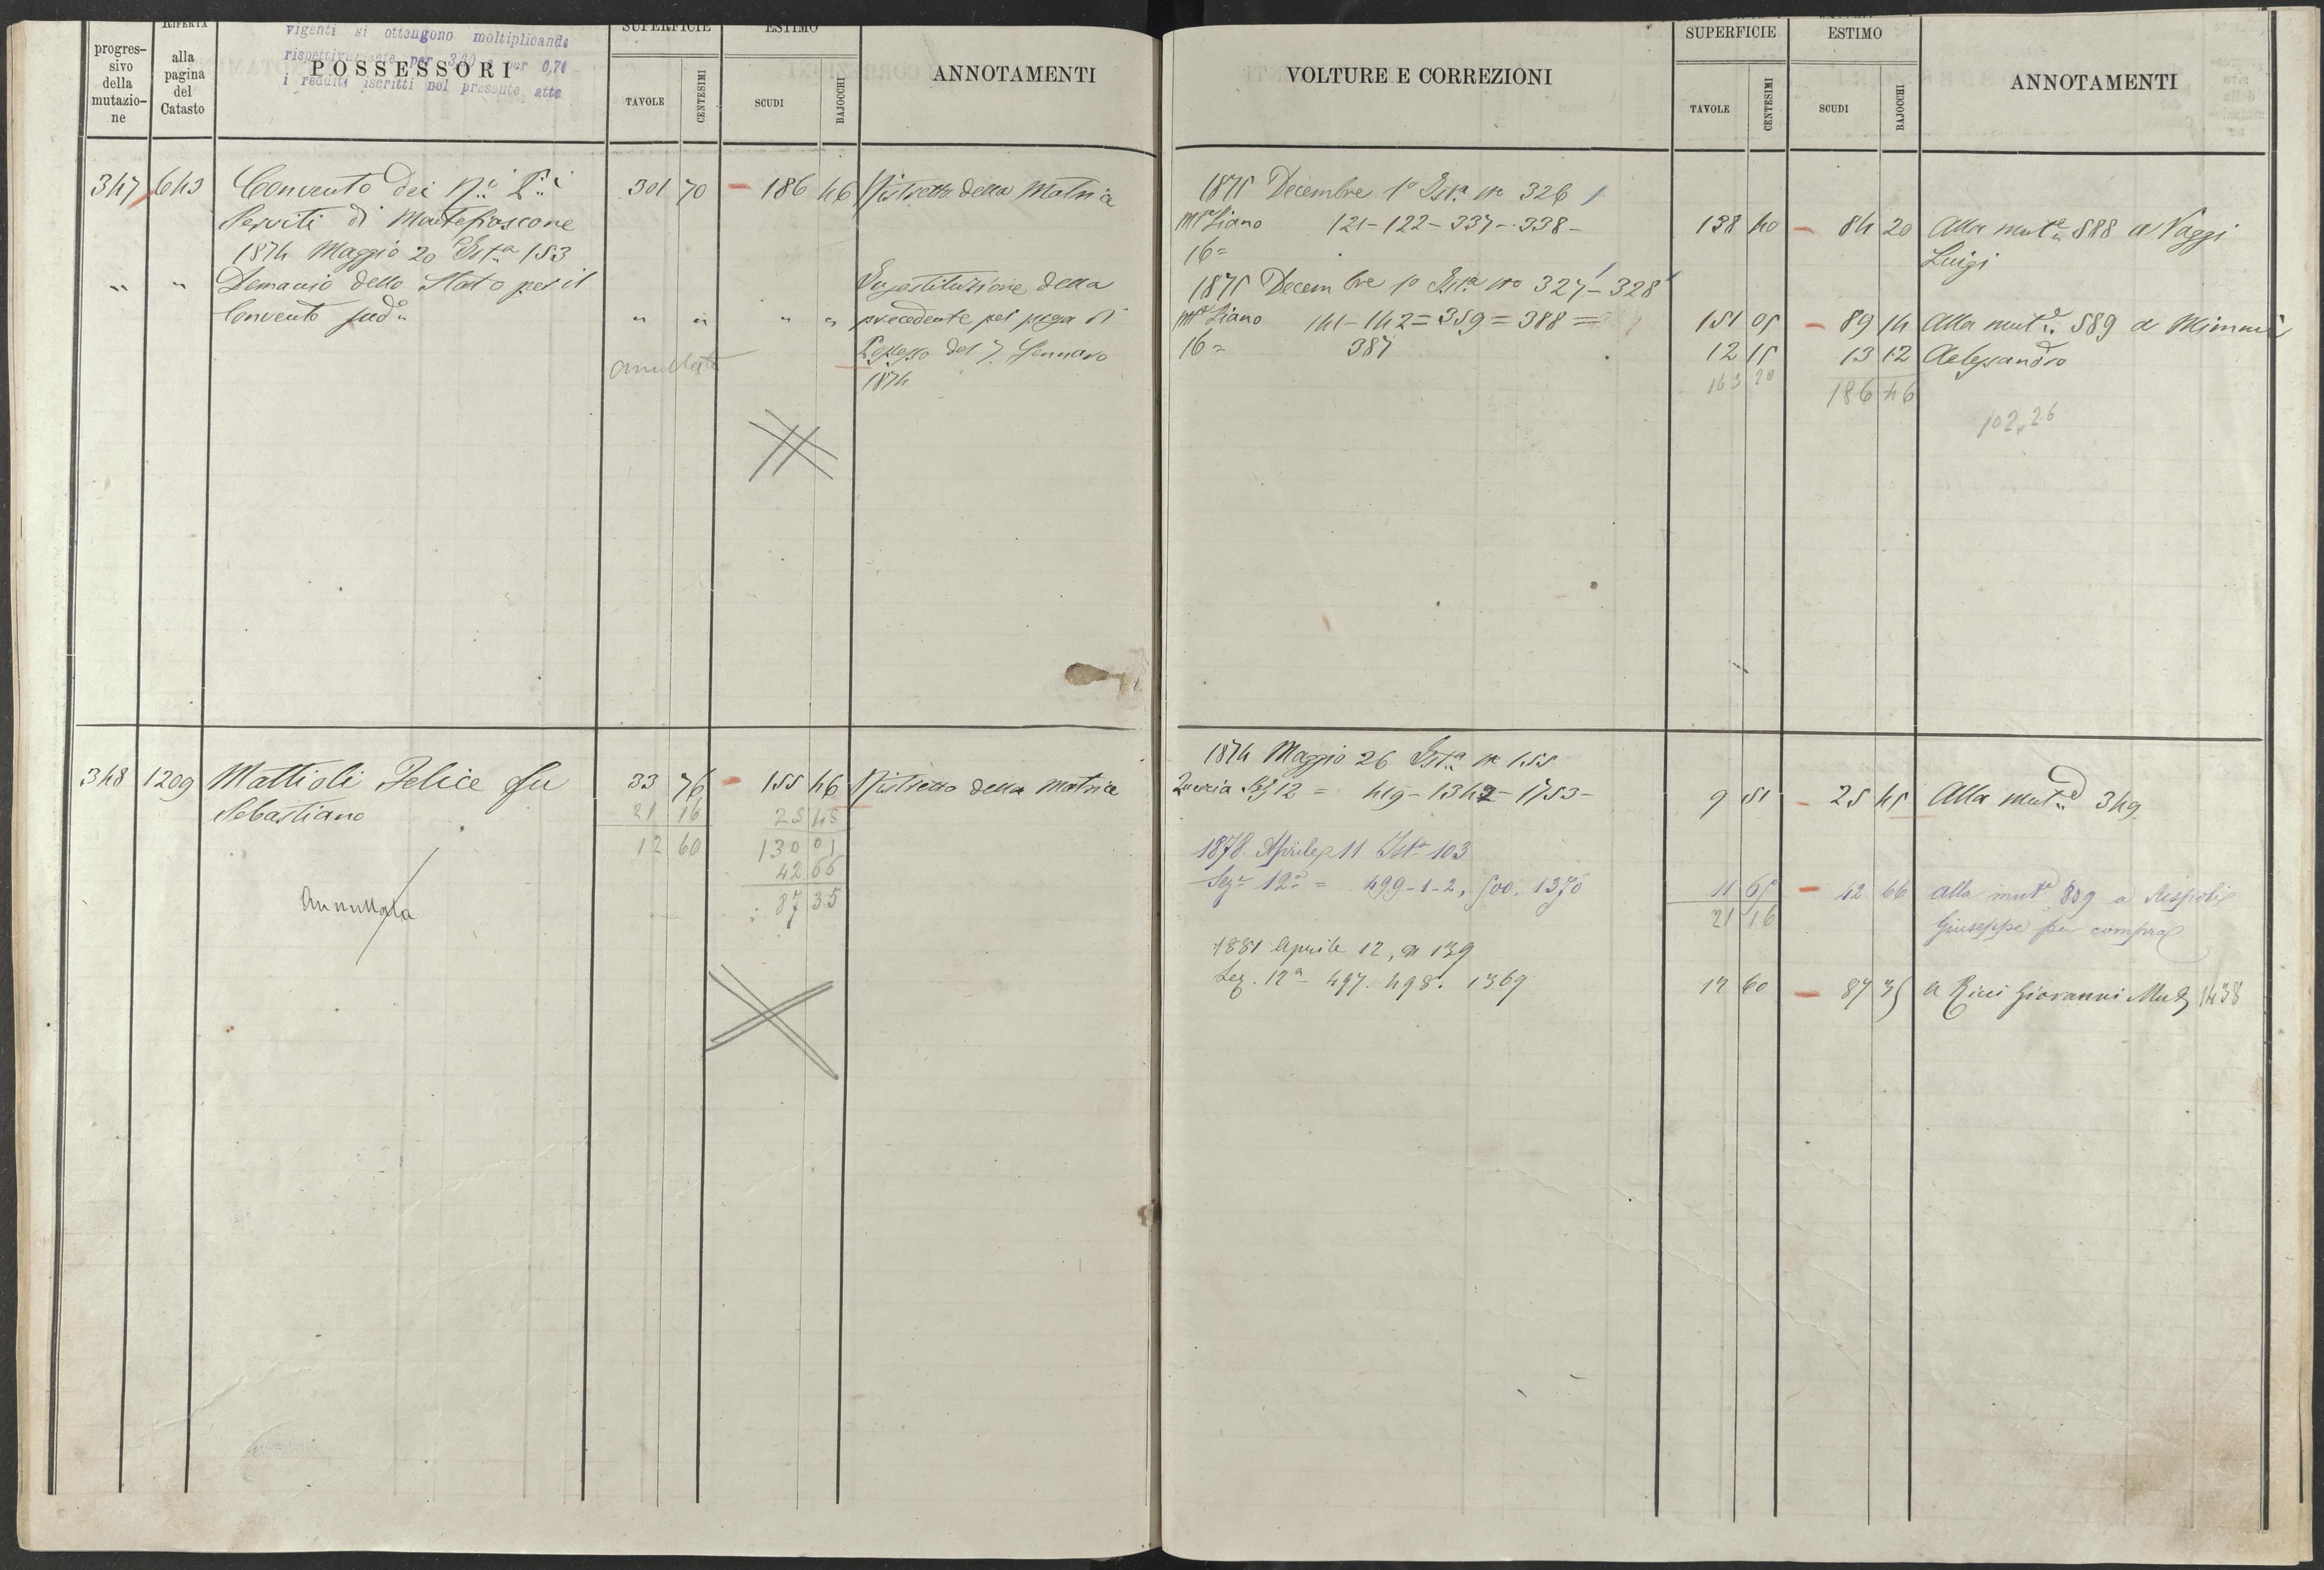 progres-
sivo
della
mutazio-
ne
RIFERTA
alla
pagina
del
Catasto
vigenti si ottengono moltiplicando
rispettivamente per 3,80 e per 0,70
i redditi iscritti nel presente atto
POSSESSORI
SUPERFICIE
TAVOLE
CENTESIMI
ESTIMO
SCUDI
BAJOCCHI
ANNOTAMENTI
347 643 Convento dei R.i P.i 301 70 186 46 Ristretto della Matrice
Serviti di Montefiascone
1874 Maggio 20 Ist.a 153
" " Demanio dello Stato per il Sugostituzione della
Convento sud.o " " " " precedente per presa di
annullata Possesso del 7. Gennaro
1874
348 1209 Mattioli Felice fu 33 76 155 46 Ristretto della Matrice
Sebastiano 21 16 25 45
12 60 130 01
42 66
Annullata 87 35
VOLTURE E CORREZIONI
SUPERFICIE
TAVOLE
CENTESIMI
ESTIMO
SCUDI
BAJOCCHI
ANNOTAMENTI
1875 Decembre 1° Ist.a n° 326
121-122-337-338- 138 40 84 20 Alla mut.e 588 a Vaggi
16= Luigi
1875 Decembre 1° Ist.a n° 327-328
141-142=359=388= 151 05 89 14 Alla mut.e 589 a Mimmi
16= 387 12 15 13 12 Alessandro
163 20 186 46
102,26
1874 Maggio 26 Ist.a n° 155
Quercia Sez 12 = 419-1342-1753- 9 51 25 45 Alla mut.e 349
1878 Aprile 11 Ist.a 103
Sez.e 12.a = 499-1-2, 500. 1370 11 65 42 66 alla mut.e 809 a Rispoli
21 16 Giuseppe per compra
1881 Aprile 12, n 139
Sez. 12a - 497. 498. 1369 12 60 87 35 a Ricci Giovanni Mut. 1438